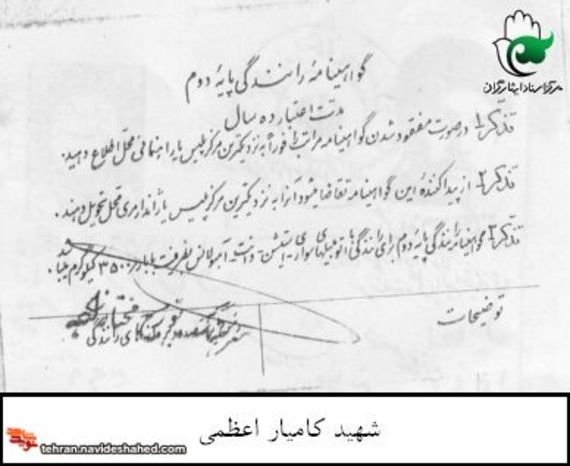 مرکز اسناد ایثارگران
گواهینامه رانندگی پایه دوم
مدت اعتبار ده سال
تذکر ۱ در صورت مفقود شدن گواهینامه مراتب را فوراً به نزدیکترین مرکز پلیس یا راهنمائی محل اطلاع دهید.
تذکر ۲ از پیدا کننده این گواهینامه تقاضا میشود آنرا به نزدیکترین مرکز پلیس یا ژاندارمری محل تحویل دهند.
تذکر ۳ گواهینامه رانندگی پایه دوم برای رانندگی با اتومبیلهای سواری استیشن وانت آمبولانس بظرفیت با بار ۳۵۰۰ کیلوگرم میباشد.
توضیحات
رانندگی
شهید کامیار اعظمی
نوید شاهد
tehran.navideshahed.com